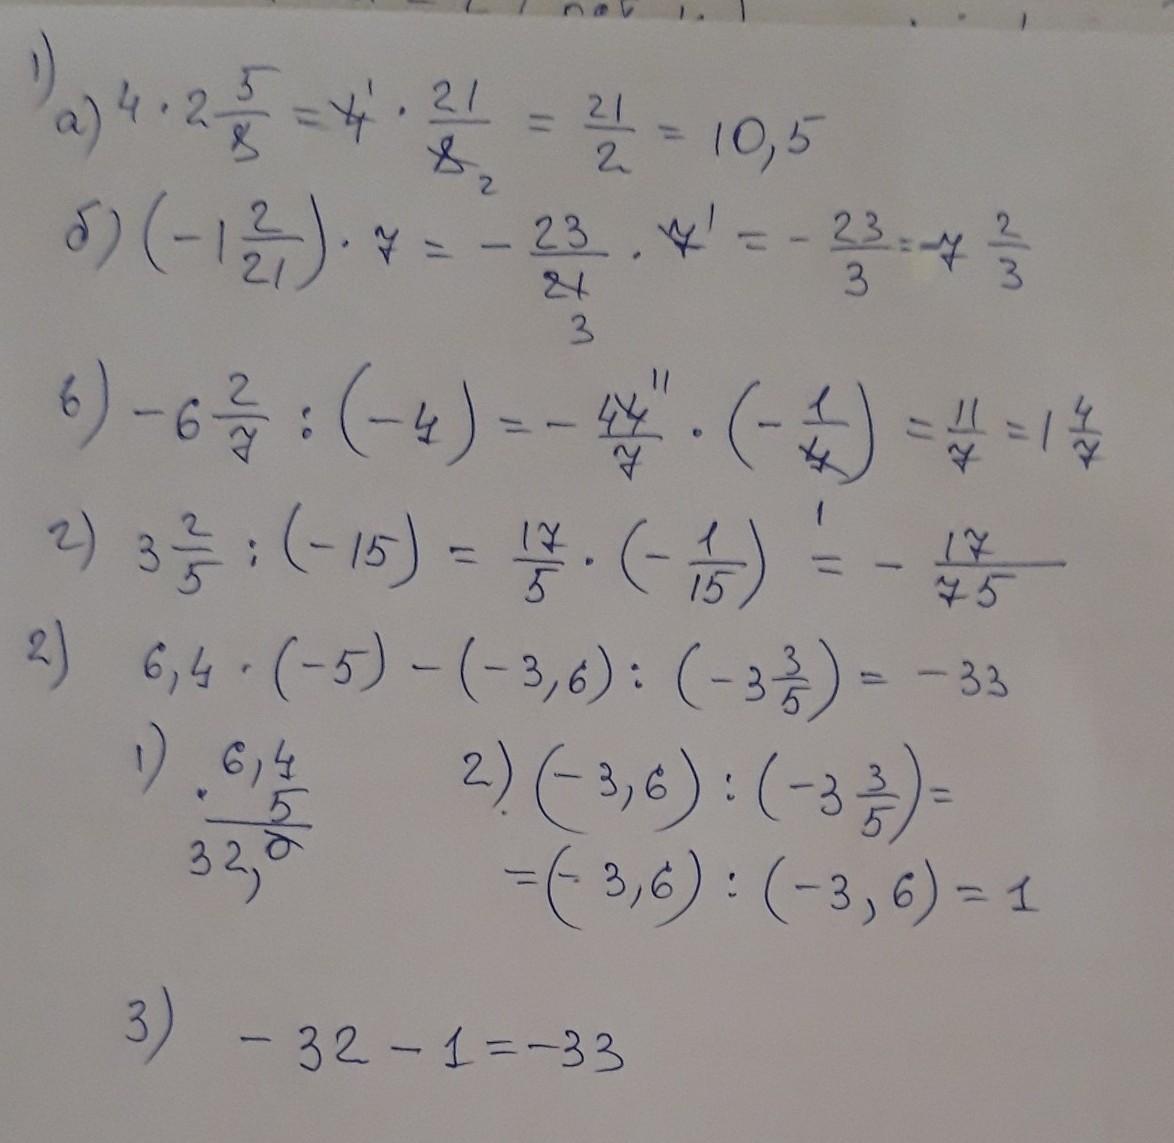 1)
а) 4 · 2 5/8 = 4 1 · 21/8 2 = 21/2 = 10,5
б) (-1 2/21) · 7 = - 23/21 3 · 7 1 = - 23/3 = -7 2/3
в) -6 2/7 : (-4) = - 44 11/7 · (- 1/4) = 11/7 = 1 4/7
г) 3 2/5 : (-15) = 17/5 · (- 1/15) = - 17/75
2) 6,4 · (-5) - (-3,6) : (-3 3/5) = -33
1) 6,4
· 5
32,0
2) (-3,6) : (-3 3/5) =
= (-3,6) : (-3,6) = 1
3) -32 - 1 = -33